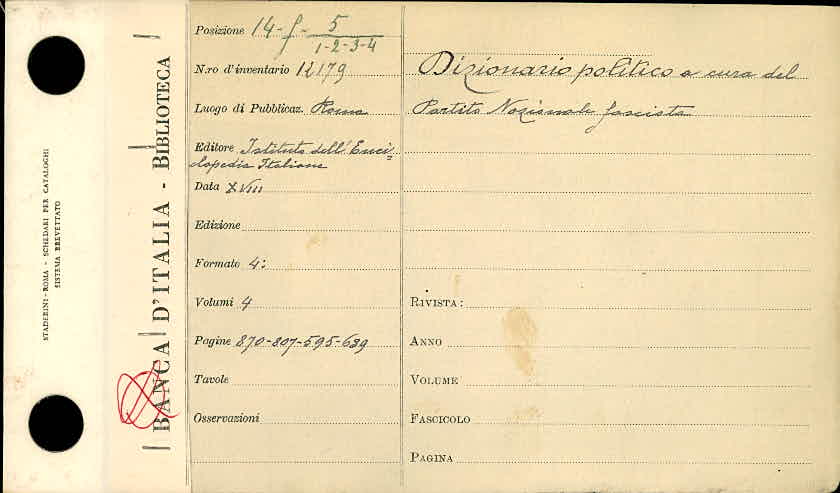 STADERINI - ROMA - SCHEDARI PER CATALOGHI
SISTEMA BREVETTATO
BANCA D'ITALIA - BIBLIOTECA
Posizione 14-f-5
1-2-3-4
N.ro d'inventario 12179
Luogo di Pubblicaz. Roma
Editore Istituto dell'Enci=
clopedia Italiana
Data XVIII
Edizione
Formato 4:
Volumi 4
Pagine 870-807-595-639
Tavole
Osservazioni
Dizionario politico a cura del
Partito Nazionale fascista
RIVISTA:
ANNO
VOLUME
FASCICOLO
PAGINA